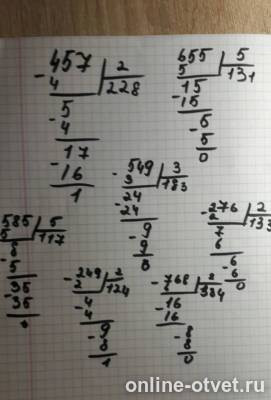 457 | 2
- 4 | 228
5
- 4
17
- 16
1
655 | 5
5 | 131
15
- 15
5
- 5
0
549 | 3
- 3 | 183
24
- 24
9
- 9
0
276 | 2
- 2 | 133
7
6
6
- 6
0
585 | 5
5 | 117
8
- 5
35
- 35
0
249 | 2
- 2 | 124
4
- 4
9
- 8
1
768 | 2
- 6 | 384
16
- 16
8
- 8
0
online-otvet.ru